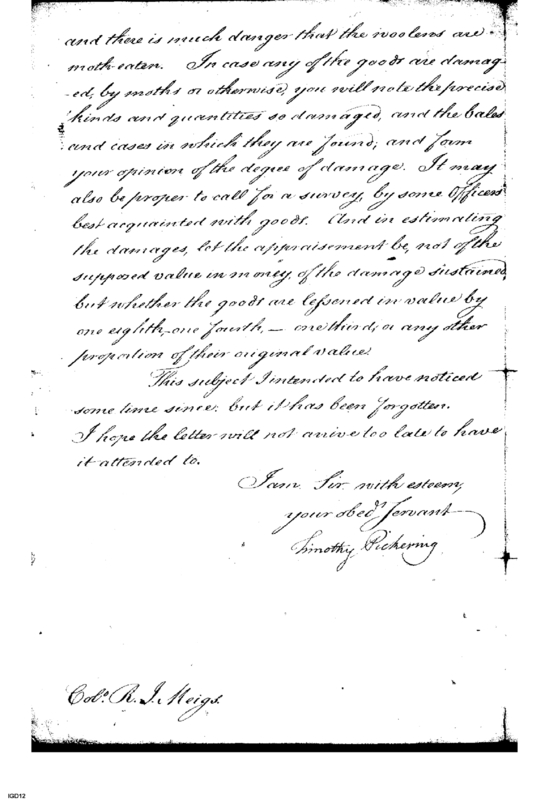 and there is much danger that the woolens are
moth-eaten. In case any of the goods are damag-
ed, by moths or otherwise, you will note the precise
kinds and quantities so damaged, and the bales
and cases in which they are found; and form
your opinion of the degree of damage. It may
also be proper to call for a survey, by some Officers
best acquainted with goods. And in estimating
the damages, let the appraisement be, not of the
supposed value in money, of the damage sustained,
but whether the goods are lessened in value by
one eighth, one fourth, — one third, or any other
proportion of their original value.
This subject I intended to have noticed
some time since; but it has been forgotten.
I hope the letter will not arrive too late to have
it attended to.
I am Sir with esteem,
your obedt Servant
Timothy Pickering
Colo. R. J. Meigs.
IGD12